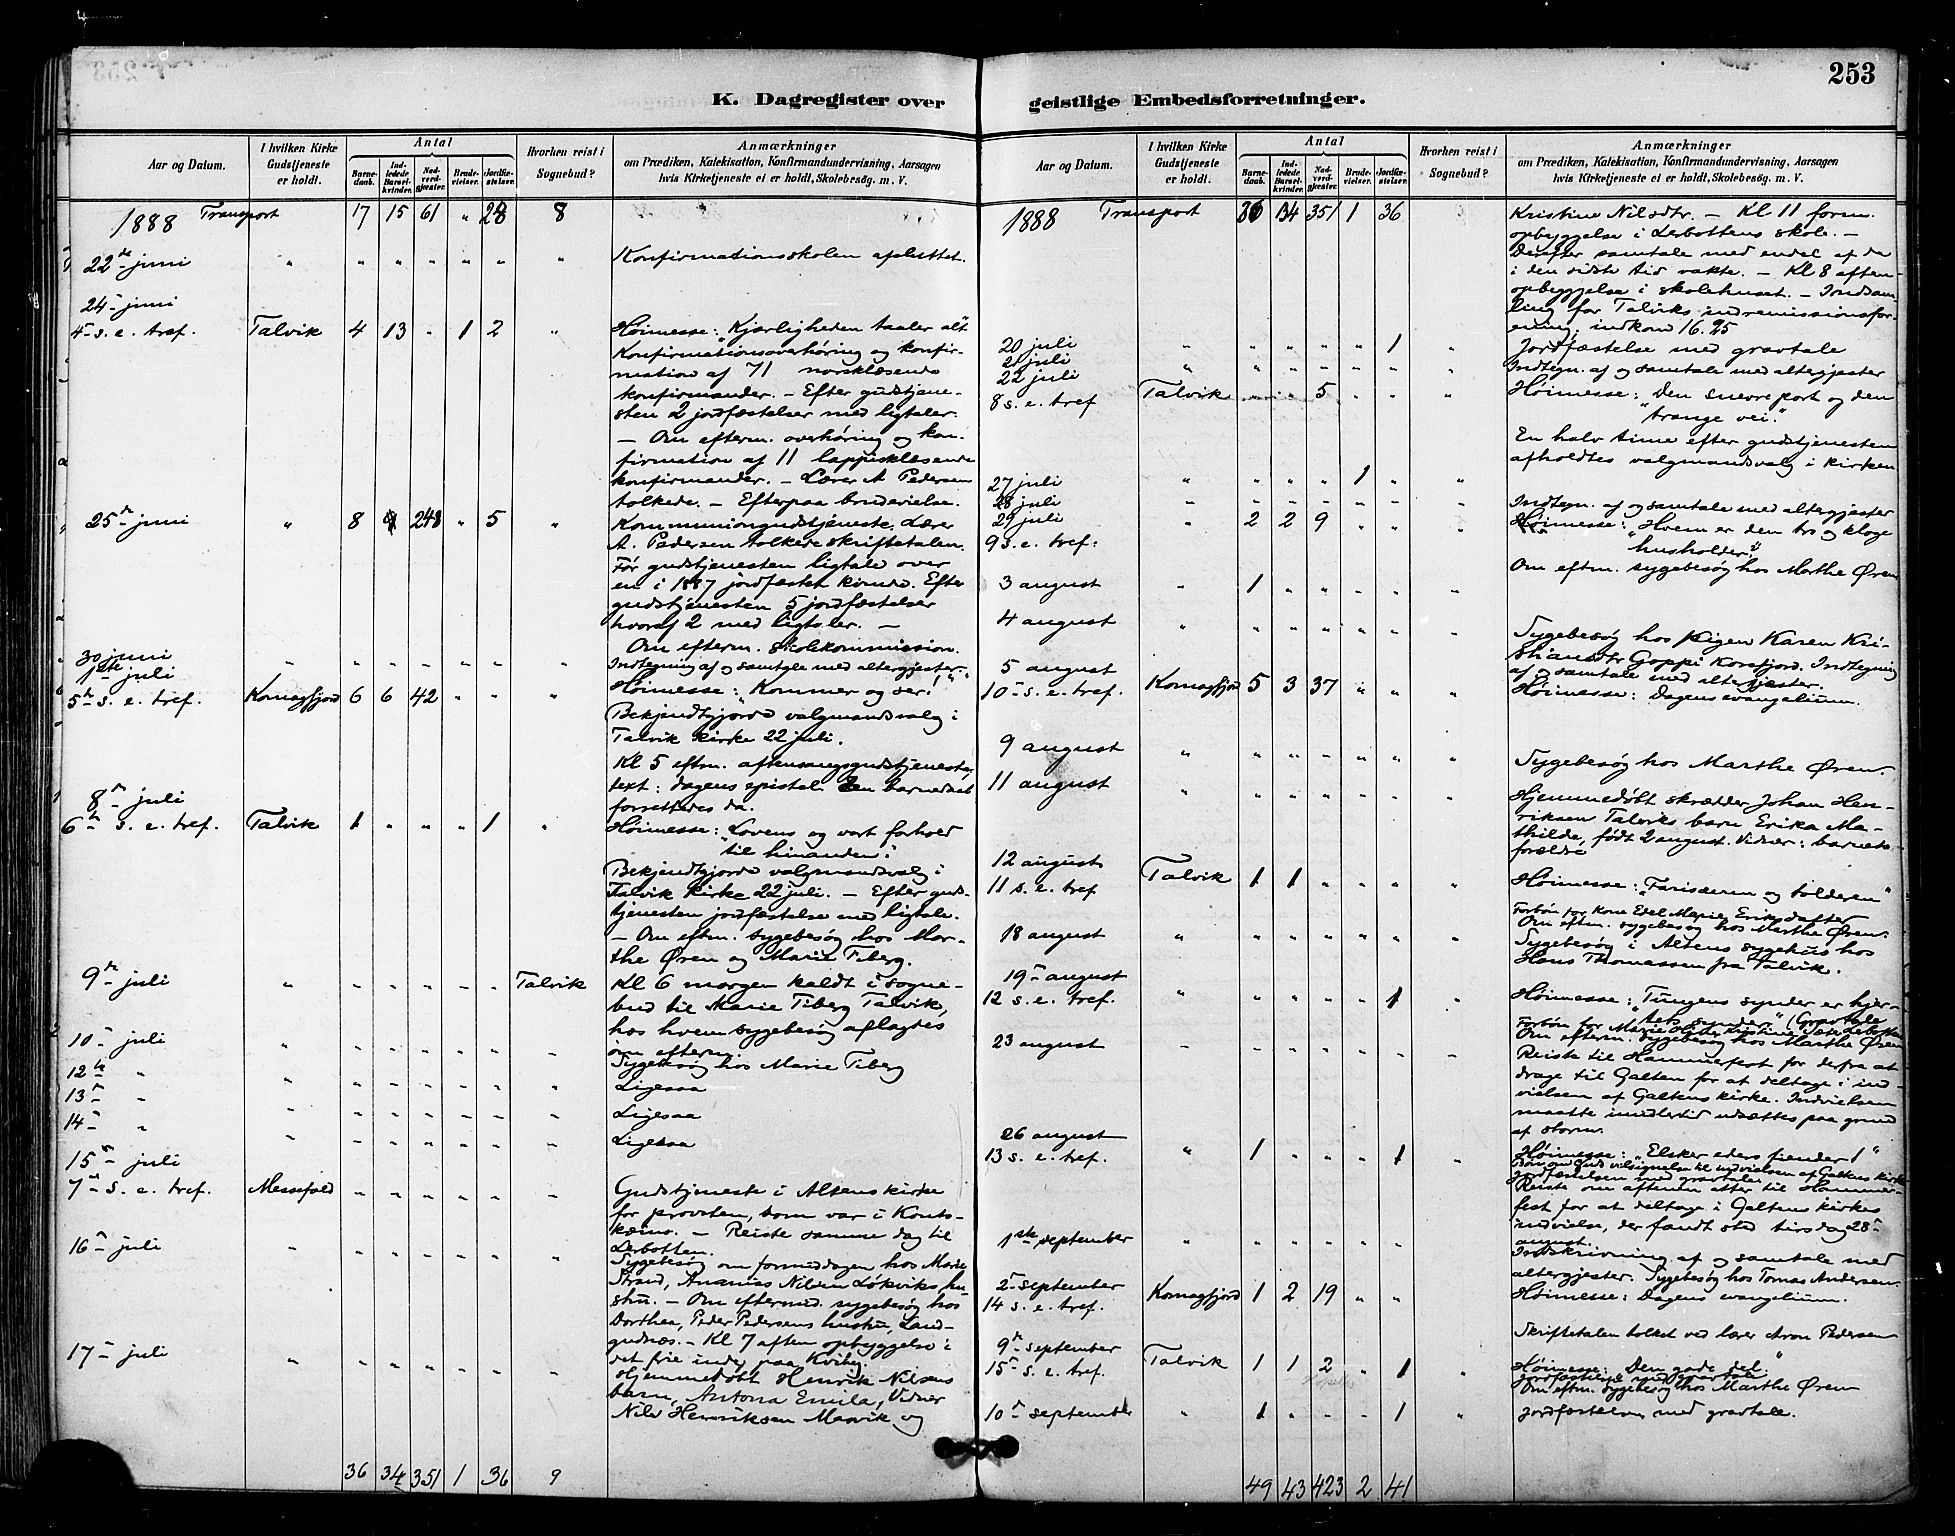 253
K. Dagregister over geistlige Embedsforretninger.
Aar og Datum. I hvilken Kirke Gudstjeneste er holdt. Antal Barnedaab. Indledede Barselkvinder. Nadverdgjester. Brudevielser. Jordfæstelser. Hvorhen reist i Sognebud? Anmærkninger om Prædiken, Katekisation, Konfirmandundervisning, Aarsagen hvis Kirketjeneste ei er holdt, Skolebesøg. m. V.
1888 Transport 17 15 61 " 28 8
22de juni " " " " " " " Konfirmationsskolen afsluttet.
24- juni
4- s. e. tref. Talvik 4 13 - 1 2 " Høimesse: "Kjærligheden taaler alt"
Konfirmationsoverhøring og konfir-
mation af 71 norsklæsende
konfirmander. - Efter gudstjene-
sten 2 jordfæstelser med ligtaler.
- Om efterm. overhøring og kon-
firmation af 11 lappisklæsende
konfirmander. - Lærer A Pedersen
tolkede. - Efterpaa brudevielse.
25de juni " 8 9 248 " 5 " Kommuniongudstjeneste. Lærer
A. Pedersen tolkede skriftetalen.
Før gudstjenesten ligtale over
en i 1887 jordfæstet kvinde. Efter
gudstjenesten 5 jordfæstelser
hvoraf 2 med ligtaler. -
Om efterm. skolekommission.
30 juni " " " " " " " Indtegning af og samtale med altergjester.
1ste juli
5te s. e. tref. Komagfjord 6 6 42 " " " Høimesse: "Kommer og ser!"
Bekjendtgjorde valgmandsvalg i
Talvik kirke 22 juli.
Kl 5 eftm. aftensangsgudstjeneste,
text: dagens epistel. En barnedaab
forrettedes da.
8de juli
6te s. e. tref. Talvik 1 " " " 1 " Høimesse: "Lovens og vort forhold
til hinanden".
Bekjendtgjorde valgmandsvalg i
Talvik kirke 22 juli. - Efter guds-
tjenesten jordfæstelse med ligtale.
- Om eftm. sygebesøg hos Mar-
the Øren og Marie Tiberg.
9de juli " - - - - - Talvik Kl 6 morgen kaldt i sogne-
bud til Marie Tiberg Talvik,
hos hvem sygebesøg aflagdes
om efterm.
10- juli " - - - - - - Sygebesøg hos Marie Tiberg
12te " " - - - - - - Ligesaa
13- " " - - - - - - Ligesaa
14- " " - - - - - - Ligesaa
15de juli
7de s. e. tref. Messefald - - - - - - Gudstjeneste i Altens kirke
for provsten, som var i Kouto-
kæino. - Reiste samme dag til
Lerbotten.
16de juli " " " " " " " Sygebesøg om formiddagen hos Marie
Strand, Ananias Nilsen Løkviks hu-
stru. - Om eftermid. sygebesøg hos
Dorthea, Peder Pedersens hustru, Land-
- Kl 7 aften opbyggelse i
det frie inde paa Kviby.
17- juli " - - - - - - Hjemmedøbt Henrik Nilsens
barn, Antona Emila, Vidner
Nils Henriksen Marvik og
36 34 351 1 36 9
Aar og Datum. I hvilken Kirke Gudstjeneste er holdt. Antal Barnedaab. Indledede Barselkvinder. Nadverdgjester. Brudevielser. Jordfæstelser. Hvorhen reist i Sognebud? Anmærkninger om Prædiken, Katekisation, Konfirmandundervisning, Aarsagen hvis Kirketjeneste ei er holdt, Skolebesøg. m. V.
1888 Transport 36 34 351 1 36 Kristine Nilsdtr. - Kl 11 form.
opbyggelse i Lerbottens skole. -
Derefter samtale med endel af de
i den sidste tid vakte. - Kl 8 aften
opbyggelse i skolehuset. - Indsam-
ling for Talviks indremissionsfor-
ening; indkom 16.25
20 juli " " " " " 1 " Jordfæstelse med gravtale
21 juli " " " " " " " Indtegn. af og samtale med altergjester
22 juli
8 s. e. tref Talvik " " 5 " " " Høimesse: "Den snevre port og den
trange vei."
En halv time efter gudstjenesten
afholdtes valgmandsvalg i kirken
27 juli " " " " 1 " "
28 juli Indtegn. af og samtale med altergjester
29 juli " 2 2 9 " " " Høimesse: "Hvem er den tro og kloge
9 s. e. tref. husholder?"
Om eftm. sygebesøg hos Marthe Øren
3 august " 1 " " " " "
4 august " " " " " " " Sygebesøg hos pigen Karen Kri-
stiansdtr Goppi Korsfjord. Indtegning
af og samtale med altergjester.
5 august
10- s. e. tref. Komagfjord 5 3 37 " " " Høimesse: Dagens evangelium.
9 august " " " " " " " Sygebesøg hos Marthe Øren.
11 august " " " " " " " Hjemmedøbt skrædder Johan Hen-
riksen Talviks barn Erika Ma-
thilde, født 2 august. Vidner: barnets
forældre
12 august
11 s. e. tref Talvik 1 1 " " " " Høimesse: "Farisæeren og tolderen"
Forbøn for Kone Edel Marie Eriksdatter
Om eftm. sygebesøg hos Marthe Øren.
18 august " " " " " " " Sygebesøg i Altens sygehus hos
Hans Thomassen fra Talvik.
19- august
12 s. e. tref. " " " " " 1 " Høimesse: "Tungens synder er hjer-
tets synder." (Gravtale
Forbøn for Marie
Om efterm. sygebesøg hos Marthe Øren
23 august - - - - - - - Reiste til Hammerfest for derfra at
drage til Galten for at deltage i ind-
vielsen af Galtens kirke. Indvielsen
maatte imidlertid udsættes paa grund
af storm.
26 august
13 s. e. tref. " 1 " " " 1 " Høimesse: "Elsker eders fiender!"
Bøn om Guds velsignelse til indvielsen af Galtens kirke
Jordfæstelsen med gravtale
Reiste om aftenen atter til Hammer-
fest for at deltage i Galtens kirkes
indvielse, der fandt sted tirsdag 28-
august.
1ste september " " " " " " " Indskrivning af og samtale med
altergjester. Sygebesøg hos Tomas Andersen.
2- september
14 s. e. tref. Komagfjord 1 2 19 " " Høimesse: Dagens evangelium.
Skriftetalen tolket ved lærer Aron Pedersen
9de september
15- s. e. tref. Talvik 1 1 2 " 1 " Høimesse: "Den gode del."
Jordfæstelse med gravtale
Om eftm. sygebesøg hos Marthe Øren
10de september " 1 " " " 1 " Jordfæstelse med gravtale.
49 43 423 2 41